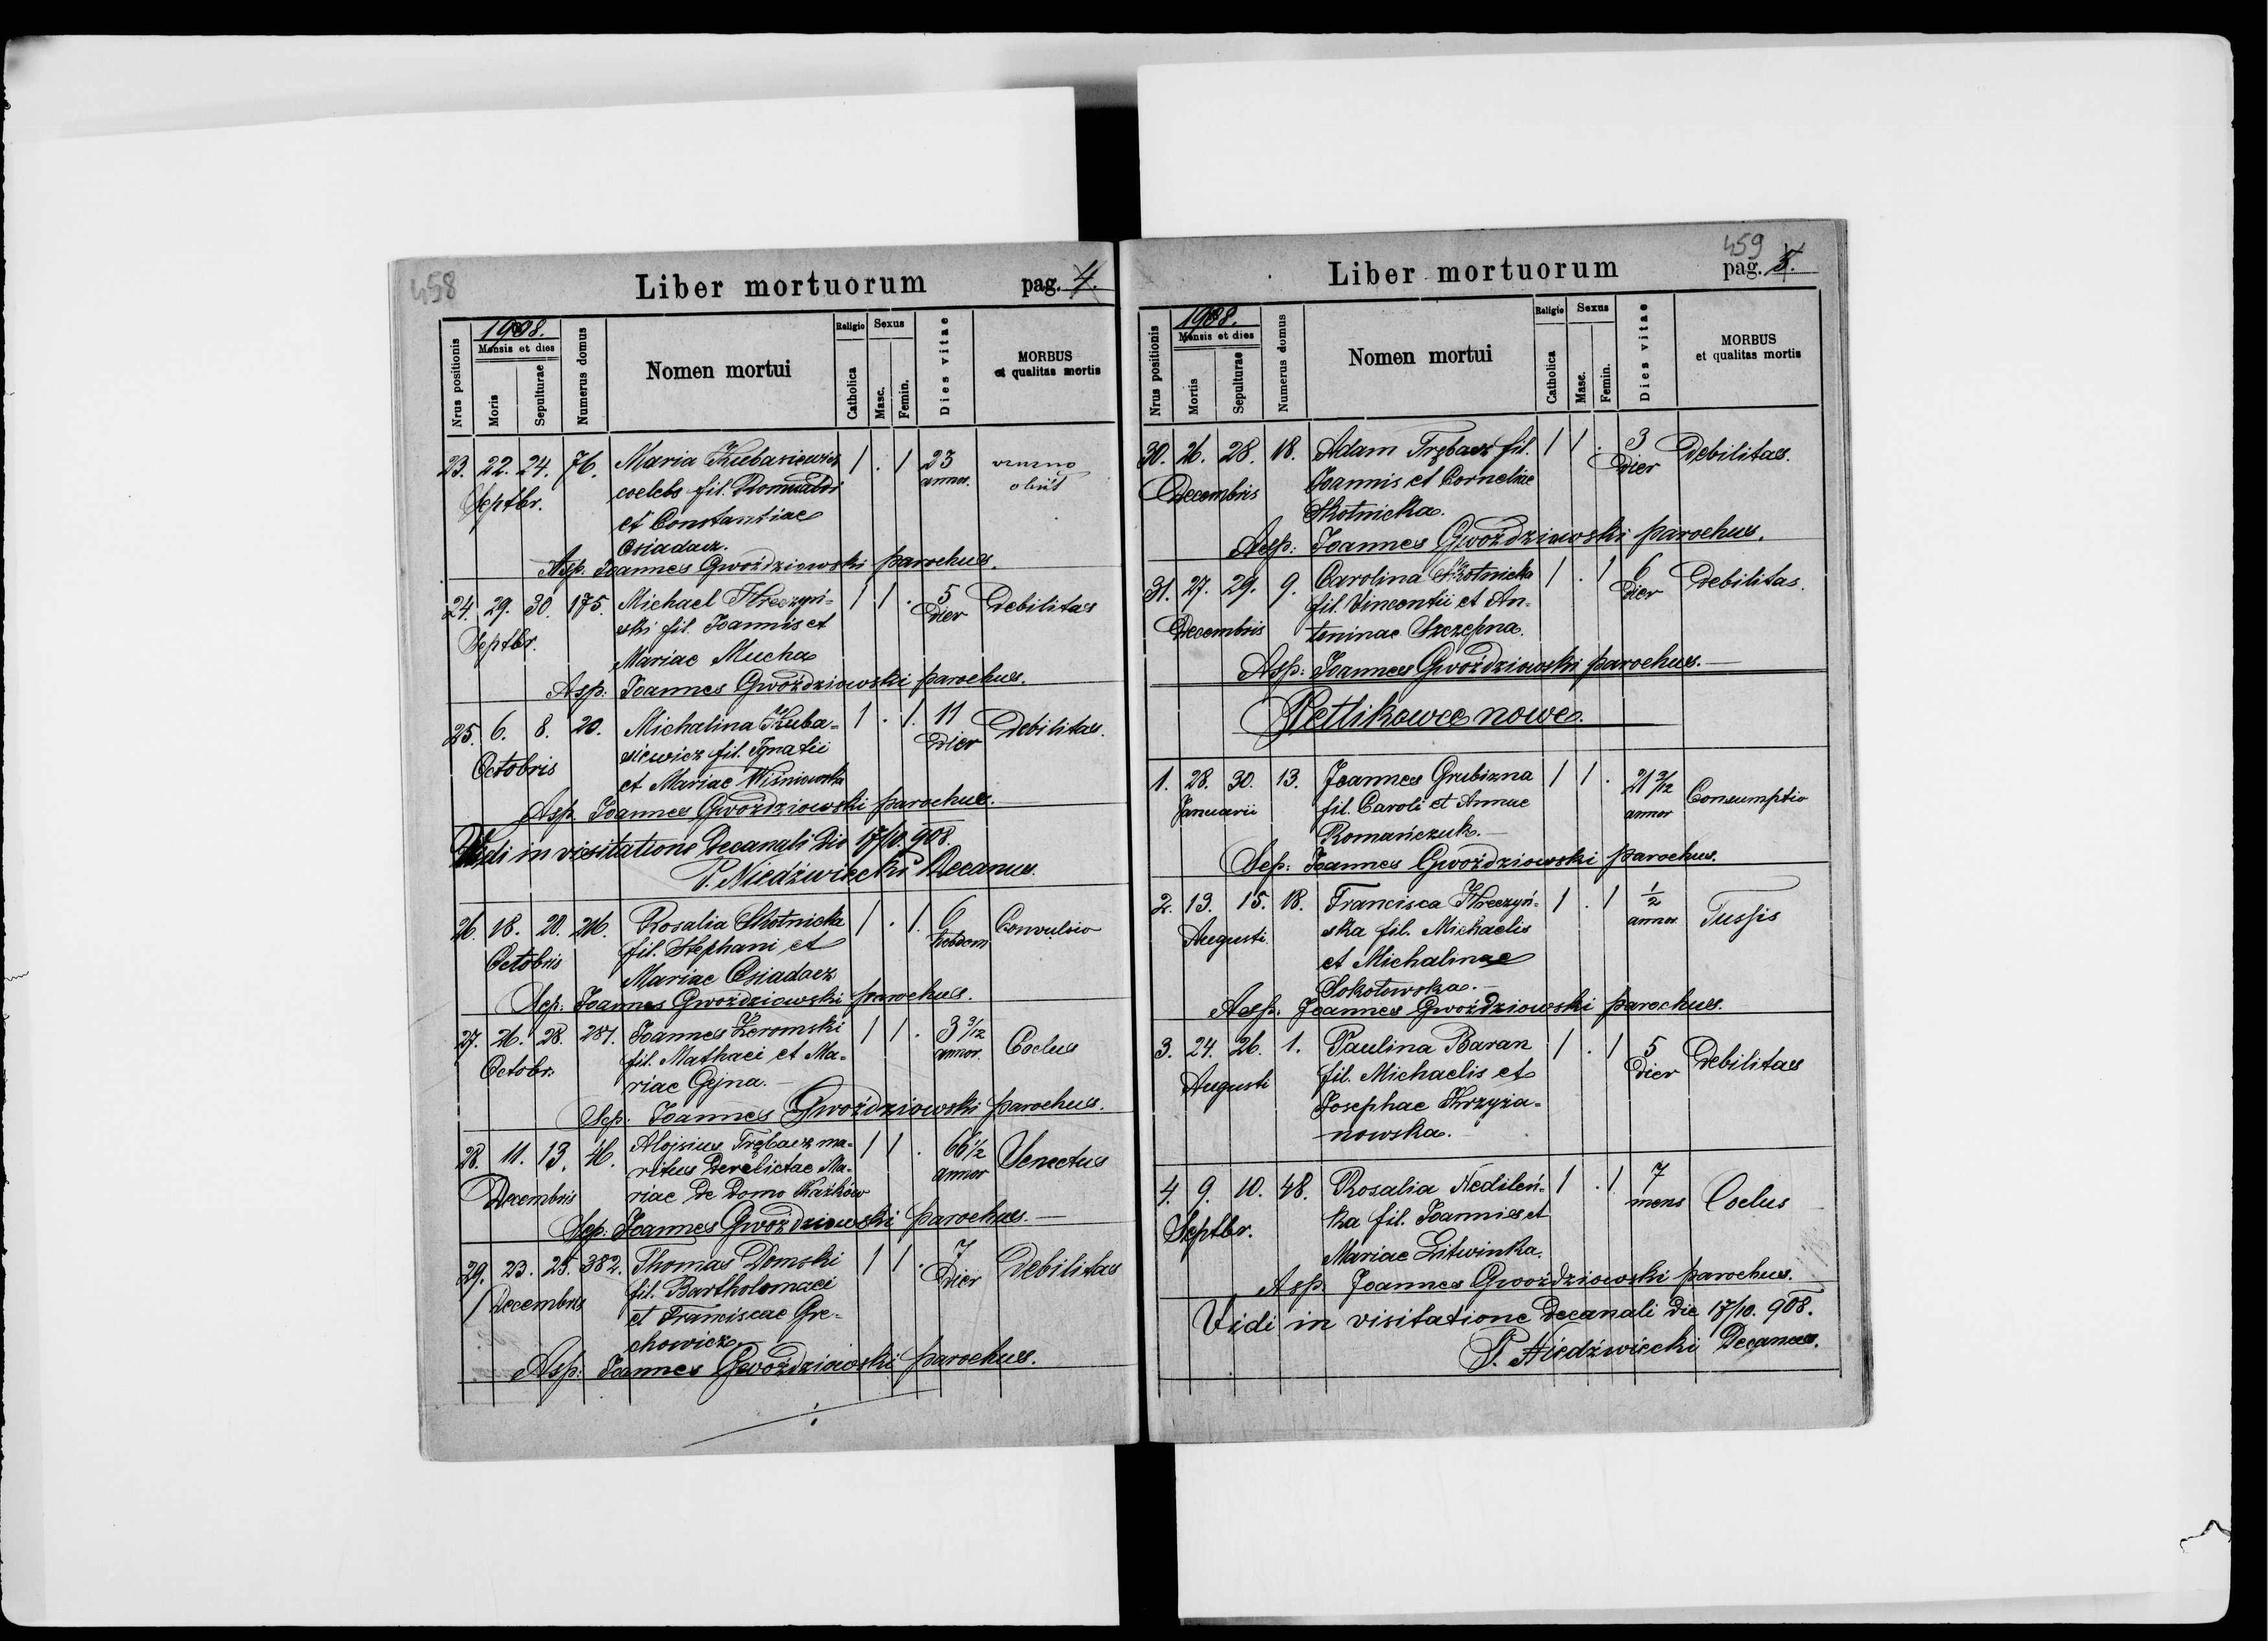 458
Liber mortuorum pag. 4.
Nrus positionis
1908.
Mensis et dies
Moris
Sepulturae
Numerus domus
Nomen mortui
Religio
Catholica
Sexus
Masc.
Femin.
Dies vitae
MORBUS
et qualitas mortis
23. 22. 24. 76. Maria Kubasiewicz 1 . 1 23
Septbr. coelebs fil. Romualdi annor. obiit
et Constantiae
Osiadacz.
Asp. Joannes Gwoździowski parochus.
24. 29. 30. 175. Michael Kreczyń- 1 1 . 5 Debilitas
Septbr. ski fil. Joannis et dier
Mariae Mucha
Asp: Joannes Gwoździowski parochus.
25. 6. 8. 20. Michalina Kuba- 1 . 1. 11 Debilitas.
Octobris siewicz fil. Ignatii dier
et Mariae Wiśniowska
Asp. Joannes Gwoździowski parochus.
Vidi in visitatione Decanali Die 17/10. 908.
P. Niedźwiecki Decanus.
26. 18. 20. 216. Rosalia Skotnicka 1 . 1. 6 Convulsio
Octobris fil. Stephani et hebdom
Mariae Osiadacz
Sep: Joannes Gwoździowski parochus.
27. 26. 28. 287. Joannes Żeromski 1 1 . 3 9/12 Coclus
Octobr. fil. Mathaei et Ma- annor.
riae Gejna.
Sep: Joannes Gwoździowski parochus.
28. 11. 13. 46. Alojsius Trębacz ma- 1 1 . 66 1/2 Senectus
Decembris ritus Derelictae Ma- annor
riae de Domo
Sep: Joannes Gwoździowski parochus.
29. 23. 25. 382. Thomas Domski 1 1 . 7 Debilitas
Decembris fil. Bartholomaei dier
et Franciscae Gre-
chowicz
Asp: Joannes Gwoździowski parochus.
459
Liber mortuorum pag. 5.
Nrus positionis
1908.
Mensis et dies
Mortis
Sepulturae
Numerus domus
Nomen mortui
Religio
Catholica
Sexus
Masc.
Femin.
Dies vitae
MORBUS
et qualitas mortis
30. 26. 28. 18. Adam Trębacz fil. 1 1 . 3 Debilitas.
Decembris Joannis et Corneliae dier
Skotnicka.
Asp: Joannes Gwoździowski parochus.
31. 27. 29. 9. Carolina Skotnicka 1 . 1 6 Debilitas.
Decembris fil. Vincentii et An- dier
toninae Szczepna.
Asp: Joannes Gwoździowski parochus.
Petlikowce nowe.
1. 28. 30. 13. Joannes Grubizna 1 1 . 21 3/12 Consumptio
Januarii fil. Caroli et Annae annor
Romańczuk.
Sep: Joannes Gwoździowski parochus.
2. 13. 15. 18. Francisca Kreczyń- 1 . 1 1/2 Tussis
Augusti ska fil. Michaelis annor
et Michalinae
Sokołowska.
Asp. Joannes Gwoździowski parochus.
3. 24. 26. 1. Paulina Baran 1 . 1 5 Debilitas
Augusti fil. Michaelis et dier
Josephae Krzyża-
nowska.
4. 9. 10. 48. Rosalia Nedileń- 1 . 1 7 Coclus
Septbr. ka fil. Joannis et mens
Mariae Litwinka.
Asp. Joannes Gwoździowski parochus.
Vidi in visitatione Decanali Die 17/10. 908.
P. Niedźwiecki Decanus.